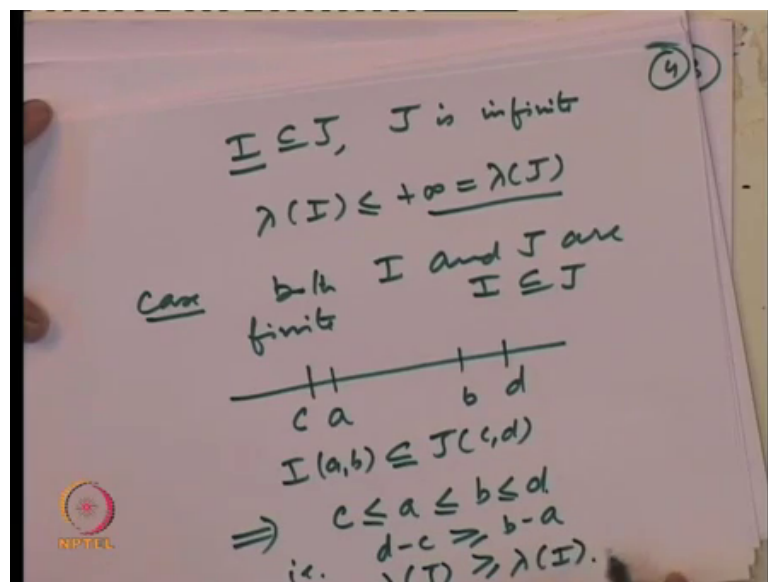 4
I ⊆ J, J is infinite
λ(I) ≤ +∞ = λ(J)
Case both I and J are
finite I ⊆ J
c a b d
I(a,b) ⊆ J(c,d)
⟹ c ≤ a ≤ b ≤ d
d-c ≥ b-a
i.e. λ(J) ≥ λ(I).
NPTEL